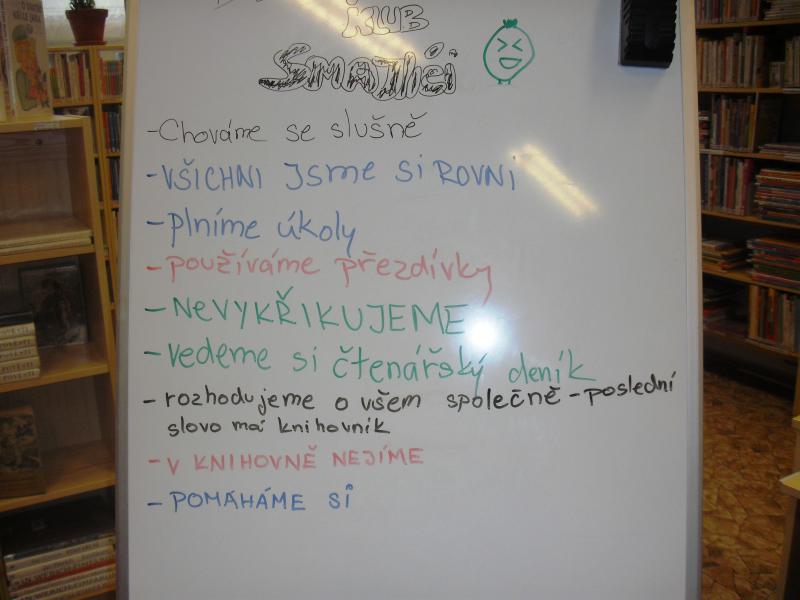 KLUB
- Chováme se slušně
- VŠICHNI jsme si ROVNI
- plníme úkoly
- používáme přezdívky
- NeVYKŘIKUJEME
- vedeme si čtenářský deník
- rozhodujeme o všem společně - poslední
slovo má knihovník
- V KNIHOVNĚ NEJÍME
- POMÁHÁME SI
POVĚSTI
POVĚSTI
POVĚSTI